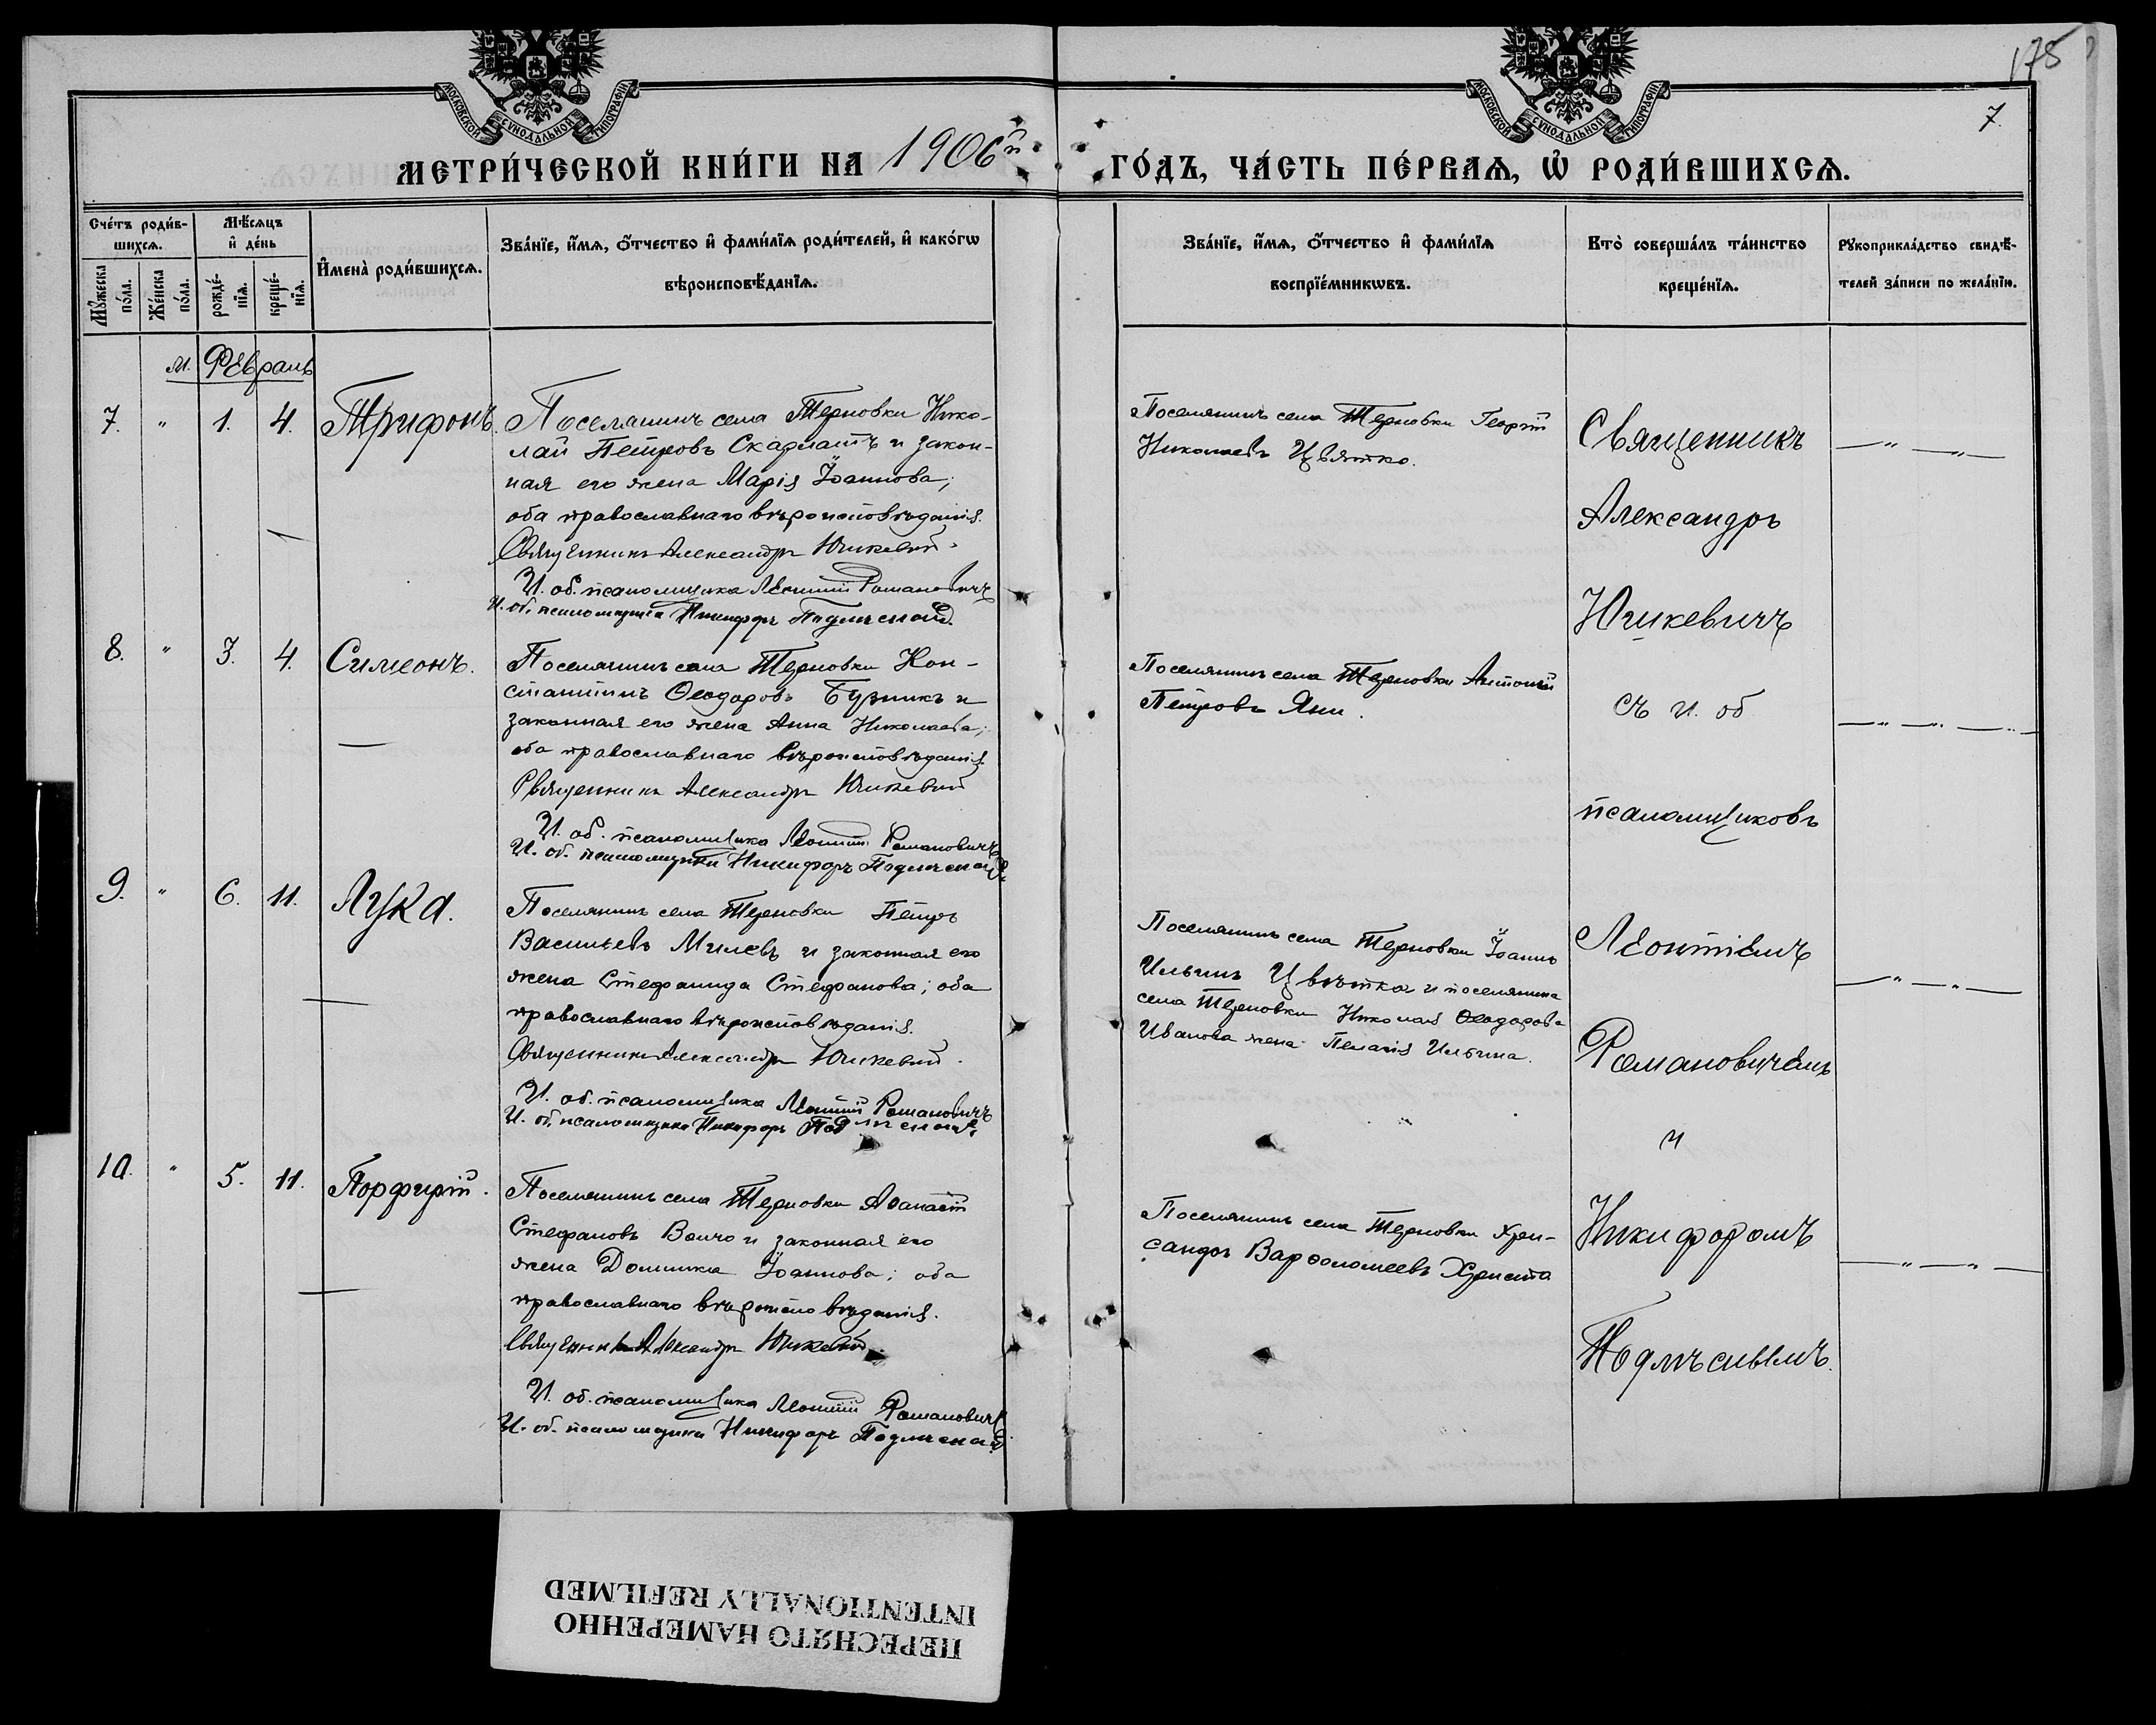 175
7.
МОСКОВСКОЙ СѴНОДАЛЬНОЙ ТИПОГРАФІИ
МОСКОВСКОЙ СѴНОДАЛЬНОЙ ТИПОГРАФІИ
МЕТРИ́ЧЕСКОЙ КНИ́ГИ НА 1906й ГО́ДЪ, ЧА́СТЬ ПЕ́РВАѦ, Ѡ҆ РОДИ́ВШИХСѦ.
Сче́тъ роди́вшихсѧ.
Мꙋ́жеска по́ла.
Же́нска по́ла.
Мѣ́сѧцъ и҆ де́нь
рожде́нїѧ.
креще́нїѧ.
И҆мена̀ роди́вшихсѧ.
Зва́нїе, и҆́мѧ, ѻ҆́тчество и҆ фами́лїѧ роди́телей, и҆ како́гѡ
вѣроисповѣ́данїѧ.
Зва́нїе, и҆́мѧ, ѻ҆́тчество и҆ фами́лїѧ
воспрїе́мникѡвъ.
Кто̀ соверша́лъ та́инство
креще́нїѧ.
Рꙋкоприкла́дство свидѣ́-
телей за́писи по жела́нїю.
м. Февраль
7. " 1. 4. Трифонъ.
Поселянинъ села Терновки Нико-
лай Петровъ Скарлатъ и закон-
ная его жена Марія Іоаннова;
оба православнаго вѣроисповѣданія.
Священникъ Александръ Юшкевичъ
И. об. псаломщика Леонтій Романовичъ
И. об. псаломщика Никифоръ Подлѣсный.
Поселянинъ села Терновки Георгій
Николаевъ Цвятко.
8. " 3. 4. Симеонъ.
Поселянинъ села Терновки Кон-
стантинъ Ѳеодоровъ Бузникъ и
законная его жена Анна Николаева;
оба православнаго вѣроисповѣданія.
Священникъ Александръ Юшкевичъ
И. об. псаломщика Леонтій Романовичъ
И. об. псаломщика Никифоръ Подлѣсный.
Поселянинъ села Терновки Антоній
Петровъ Яни.
9. " 6. 11. Лука.
Поселянинъ села Терновки Петръ
Васильевъ Милевъ и законная его
жена Стефанида Стефанова; оба
православнаго вѣроисповѣданія.
Священникъ Александръ Юшкевичъ.
И. об. псаломщика Леонтій Романовичъ
И. об. псаломщика Никифоръ Подлѣсный.
Поселянинъ села Терновки Іоаннъ
Ильинъ Цвѣтко и поселянина
села Терновки Николая Ѳеодорова
Иванова жена Пелагія Ильина.
10. " 5. 11. Порфирій.
Поселянинъ села Терновки Аѳанасій
Стефановъ Волчо и законная его
жена Домника Іоаннова; оба
православнаго вѣроисповѣданія.
Священникъ Александръ Юшкевичъ.
И. об. псаломщика Леонтій Романовичъ
И. об. псаломщика Никифоръ Подлѣсный
Поселянинъ села Терновки Хри-
санѳъ Варѳоломеевъ Христо
Священникъ
Александръ
Юшкевичъ
съ и. об
псаломщиковъ
Леонтіемъ
Романовичемъ
и
Никифоромъ
Подлѣснымъ.
ПЕРЕСНЯТО НАМЕРЕННО
INTENTIONALLY REFILMED